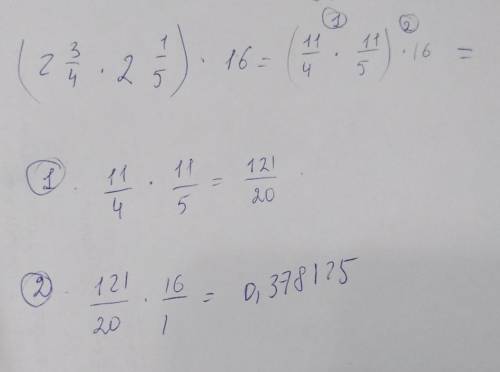 (2 3/4 · 2 1/5) · 16 = (11/4 · 11/5) · 16 =
① ②
① · 11/4 · 11/5 = 121/20 .
② · 121/20 · 16/1 = 0,378125